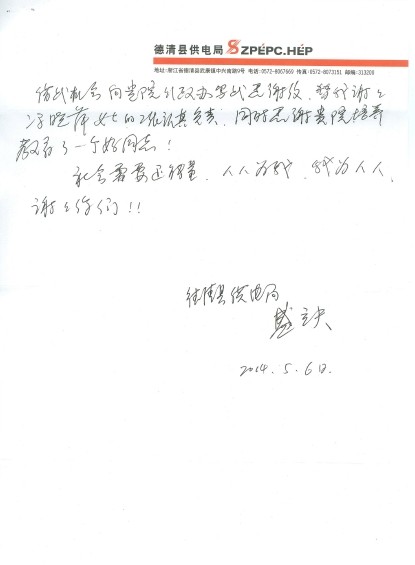 德清县供电局 ZPEPC.HEP
地址:浙江省德清县武康镇中兴南路9号 电话:0572-8067669 传真:0572-8073151 邮编:313200
借此机会向贵院行政办写此感谢信,替我谢谢
女士的工作认真负责,同时感谢贵院培养
教育了一个好同志!
社会需要正能量,人人为我,我为人人,
谢谢你们!!
德清县供电局
2014.5.6日.